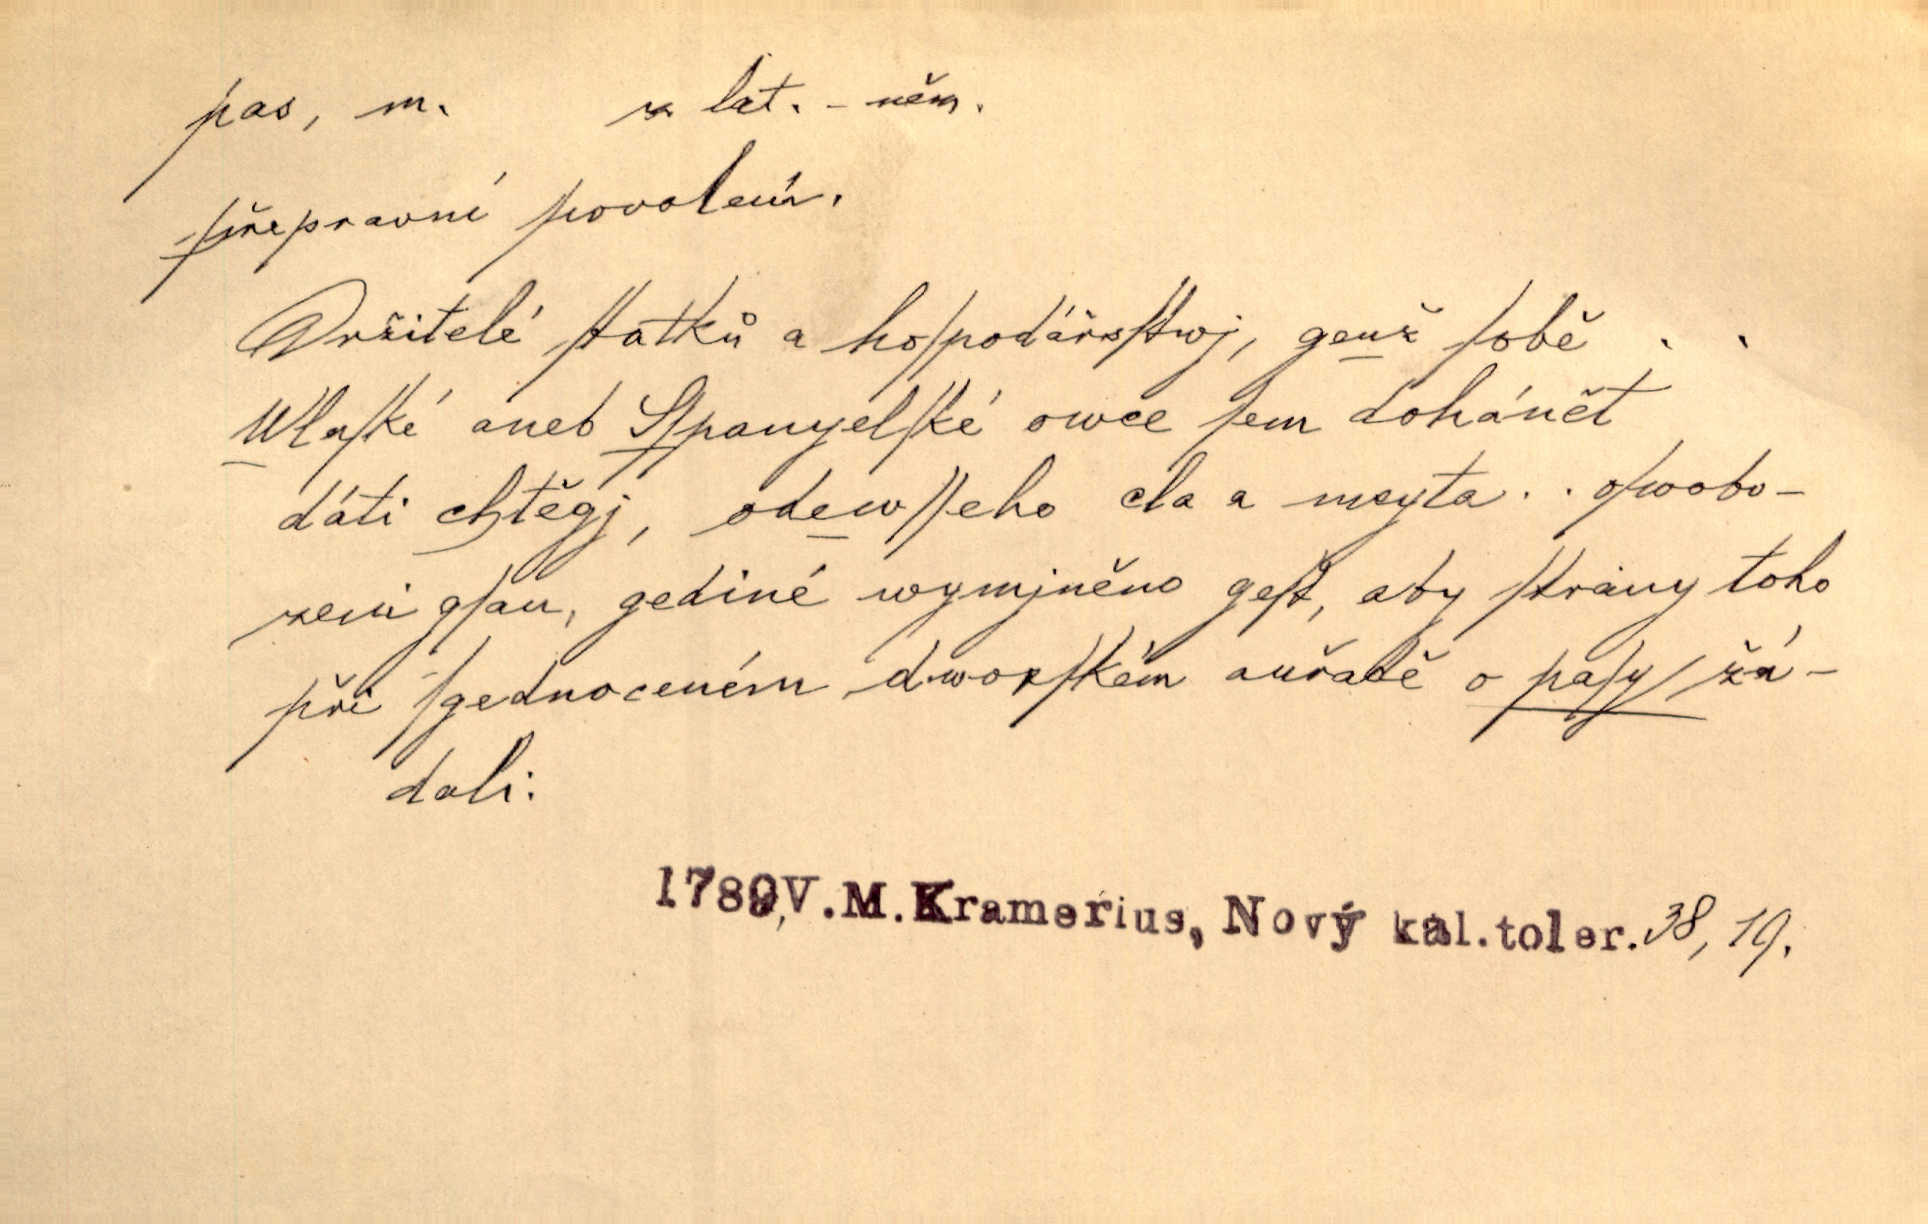 pas, m. z lat. - něm.
přepravní povolení.
Držitelé ſtatků a hoſpodářſtwj, genž ſobě . .
Wlaſké aneb Sſpanyelſké owce ſem dohánět
dáti chtěgj, odewſſeho cla a meyta . . oſwobo-
zeni gſau, gediné wymjněno geſt, aby ſtrany toho
při ſgednoceném dworſkém auřadě o paſy žá-
dali:
1789,V.M.Kramerius, Nový kal.toler. 38, 19.